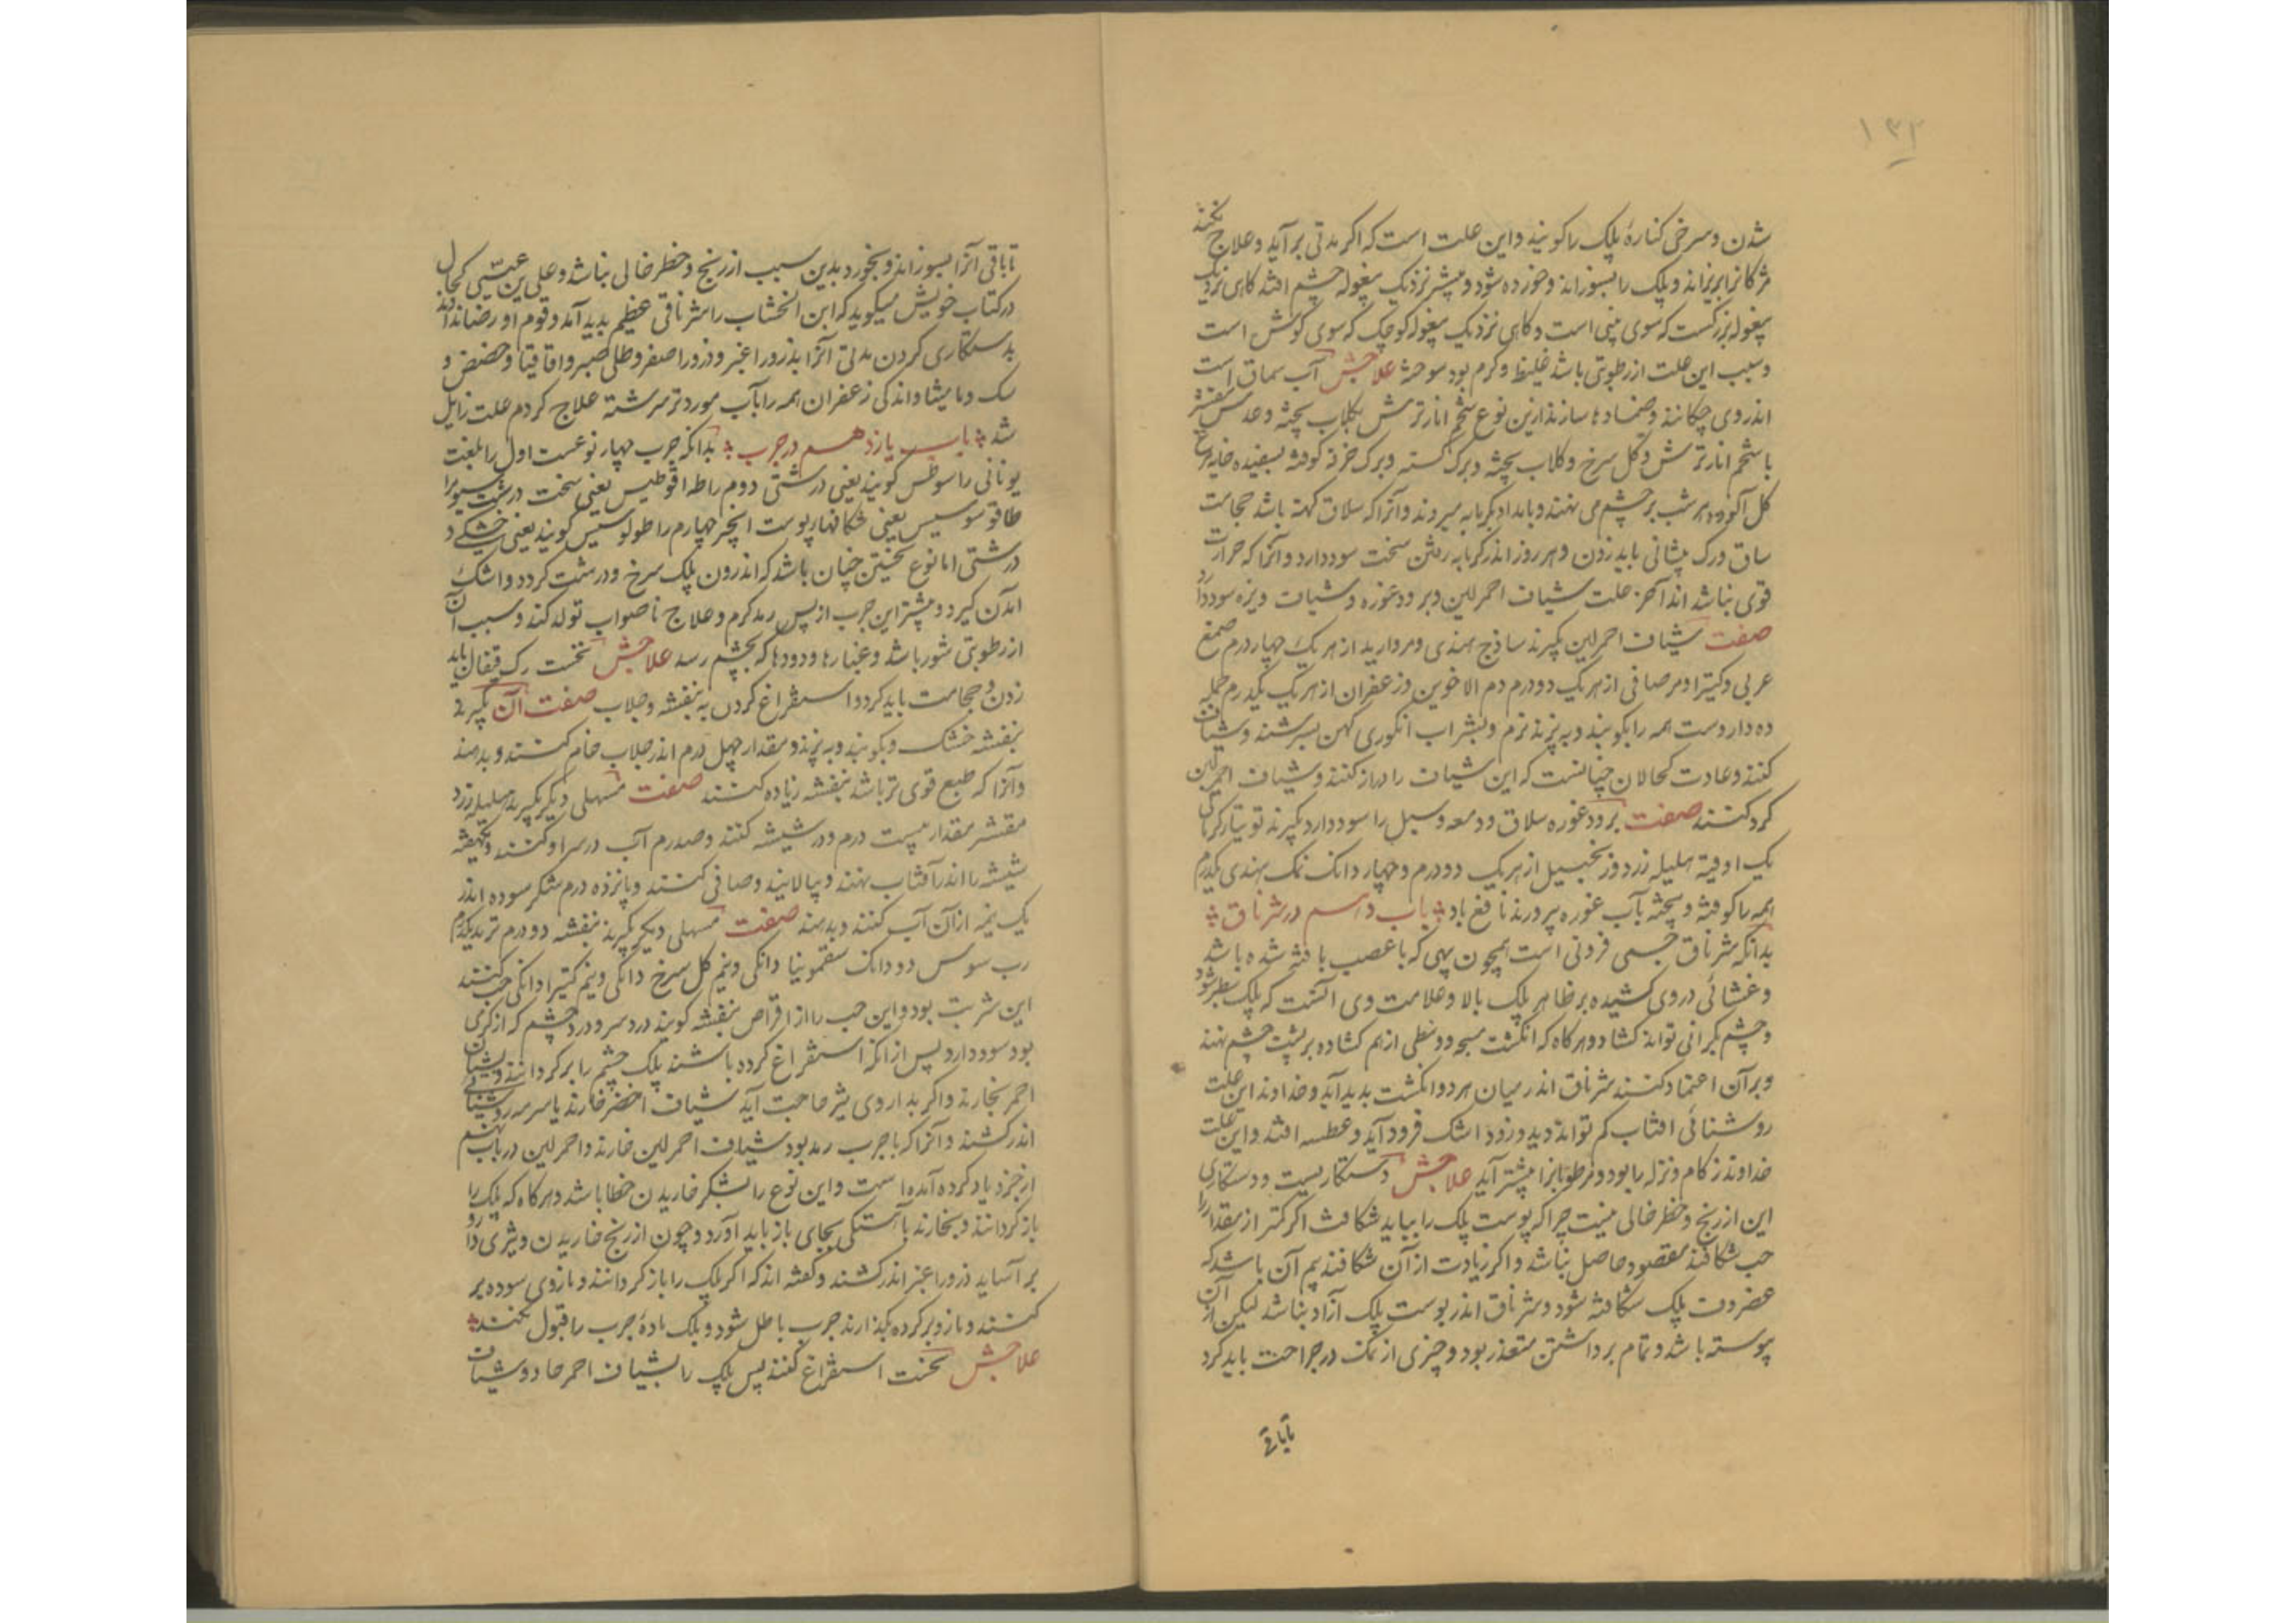 ۱۳۲
شدن و سرخی کنارهٔ پلک را کویند و این علت است که اکر مدتی برآید و علاج نکنند
مژکانرا بریزاند و پلک را بسوزاند و خورده شود و بیشتر نزدیک بیغوله چشم افتد کاهی نزدیک
بیغوله بزرکست که سوی بینی است و کاهی نزدیک بیغوله کوچک که سوی کوش است
و سبب این علت از رطوبتی باشد غلیظ و کرم بود سوخته علاجش آب سماق است
اندر وی چکانند و ضمادها سازند ازین نوع شحم انار ترش بکلاب پخته و عدس مقشر
با شحم انار ترش و کل سرخ و کلاب پخته و برک کسنه و برک خرفه کوفته بسفیده خایه مرغ
کل آلوده هر شب بر چشم می نهند و بامداد بکرمابه میروند و آنرا که سلاق کهنه باشد حجامت
ساق و رک پیشانی باید زدن و هر روز اندر کرمابه رفتن سخت سود دارد و آنرا که حرارت
قوی نباشد اندر آخر علت شیاف احمر لین و برود غوره و شیاف ویزه سود دارد
صفت شیاف احمر لین بکیرند ساذج هندی و مروارید از هر یک چهار درم صمغ
عربی و کتیرا و مر صافی از هر یک دو درم دم الاخوین و زعفران از هر یک یکدرم جمله
ده داروست همه را بکوبند و به بیزند نرم و بشراب انکوری کهن بسرشند و شیاف
کنند و عادت کحالان چنانست که این شیاف را دراز کنند و شیاف احمر لین
کرد کنند صفت برود غوره سلاق و دمعه و سبل را سود دارد بکیرند توتیا کرمانی
یک اوقیه هلیله زرد و زنجبیل از هر یک دو درم و چهار دانک نمک هندی یکدرم
همه را کوفته و بیخته بآب غوره پرورند نافع باد باب دهم در شرناق
بدانکه شرناق جسمی فزونی است همچون پیهی که با عصب بافته شده باشد
و غشائی در وی کشیده بر ظاهر پلک بالا و علامت وی آنست که پلک سطبر شود
و چشم بکرانی تواند کشاد و هرکاه که انکشت سبحه و وسطی از هم کشاده بر پشت چشم نهند
و بر آن اعتماد کنند شرناق اندر میان هر دو انکشت بدید آید و خداوند این علت
روشنائی افتاب کم تواند دید و زود اشک فرود آید و عطسه افتد و این علت
خداوند زکام و نزله را بود و مرطوبانرا بیشتر آید علاجش دستکاریست و دستکاری
این از رنج و خطر خالی نیست چرا که پوست پلک را بباید شکافت اکر کمتر از مقدار
حب شکافند مقصود حاصل نباشد و اکر زیادت از آن شکافند بیم آن باشد که
عضروف پلک شکافته شود و شرناق اندر پوست پلک آزاد نباشد لیکن از آن
پیوسته باشد و تمام برداشتن متعذر بود و چیزی از نمک در جراحت باید کرد
تا باقی
تا باقی آنرا بسوزاند و بخورد بدین سبب از رنج و خطر خالی نباشد و علی بن عیسی کحال
در کتاب خویش میکوید که ابن الخشاب را شرناقی عظیم بدید آمد و قوم او رضا ندادند
بدستکاری کردن مدتی آنرا بذرور اغبر و ذرور اصفر و طلی صبر و اقاقیا و حضض و
سک و مامیثا و اندکی زعفران همه را بآب مورد تر سرشته علاج کردم علت زایل
شد باب یازدهم در جرب بدانکه جرب چهار نوعست اول را بلغت
یونانی راسوطس کویند یعنی درشتی دوم را طراقوطیس یعنی سخت درشت سیوم را
طاقوسوسیس یعنی شکافهای پوست انجیر چهارم را طولوسیس کویند یعنی خشکی و
درشتی اما نوع نخستین چنان باشد که اندرون پلک سرخ و درشت کردد و اشک
آمدن کیرد و بیشتر این جرب از پس رمد کرم و علاج ناصواب تولد کند و سبب آن
از رطوبتی شور باشد و غبارها و دودها که بچشم رسد علاجش نخست رک قیفال باید
زدن و حجامت باید کرد و استفراغ کردن به بنفشه و جلاب صفت آن بکیرند
بنفشه خشک و بکوبند و به بیزند و مقدار چهل درم اندر جلاب خام کنند و بدهند
و آنرا که طبع قوی تر باشد بنفشه زیاده کنند صفت مسهلی دیکر بکیرند هلیله زرد
مقشر مقدار بیست درم و در شیشه کنند و صد درم آب در سر او کنند و یکهفته
شیشه را اندر آفتاب نهند و بپالایند و صافی کنند و پانزده درم شکر سوده اندر
یک نیمه از آن آب کنند و بدهند صفت مسهلی دیکر بکیرند بنفشه دو درم تربد یکدرم
رب سوس دو دانک سقمونیا دانکی و نیم کل سرخ دانکی و نیم کتیرا دانکی حب کنند
این شربت بود و این حب را از اقراص بنفشه کویند درد سر و درد چشم که از کرمی
بود سود دارد پس از آنکه استفراغ کرده باشند پلک چشم را برکردانند و بشیاف
احمر بخارند و اکر بداروی تیزتر حاجت آید شیاف اخضر خارند یا سرمه روشنایی
اندر کشند و آنرا که با جرب رمد بود شیاف احمر لین خارند و احمر لین در باب نهم
از جزو یاد کرده آمده است و این نوع را بشکر خاریدن خطا باشد و هرکاه که پلک را
باز کردانند و بخارند باهستکی بجای باز باید آورد و چون از رنج خاریدن و تیزی دارو
بر آساید ذرور اغبر اندر کشند و کفته اند که اکر پلک را باز کردانند و مازوی سوده بر
کنند و مازو بر کرده بکذارند جرب باطل شود و پلک مادهٔ جرب را قبول نکند
علاجش نخست استفراغ کنند پس پلک را بشیاف احمر حاد و شیاف